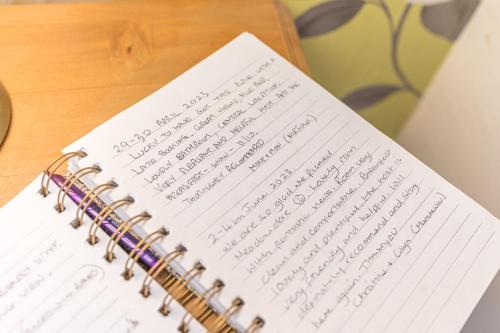 29-30 APRIL 2023
LUCKY TO HAVE GOT THIS WITH A
LATE BOOKING. GREAT NICE BED,
LOVELY BATHROOM, CENTRAL LOCATION,
VERY PLEASANT AND HELPFUL HOST AND THE
BREAKFAST - WOW - 11/10.
THOROUGHLY RECOMMENDED
MIKE + MOO
2-4th June 2023
We are so glad we picked
Meadow dore ☺ Lovely room
with fantastic views. Room very
clean and comfortable. Breakfast
lovely and plentiful, the host is
very friendly and helpful. Will
definately recommend and stay
here again. Thankyou
Christine +